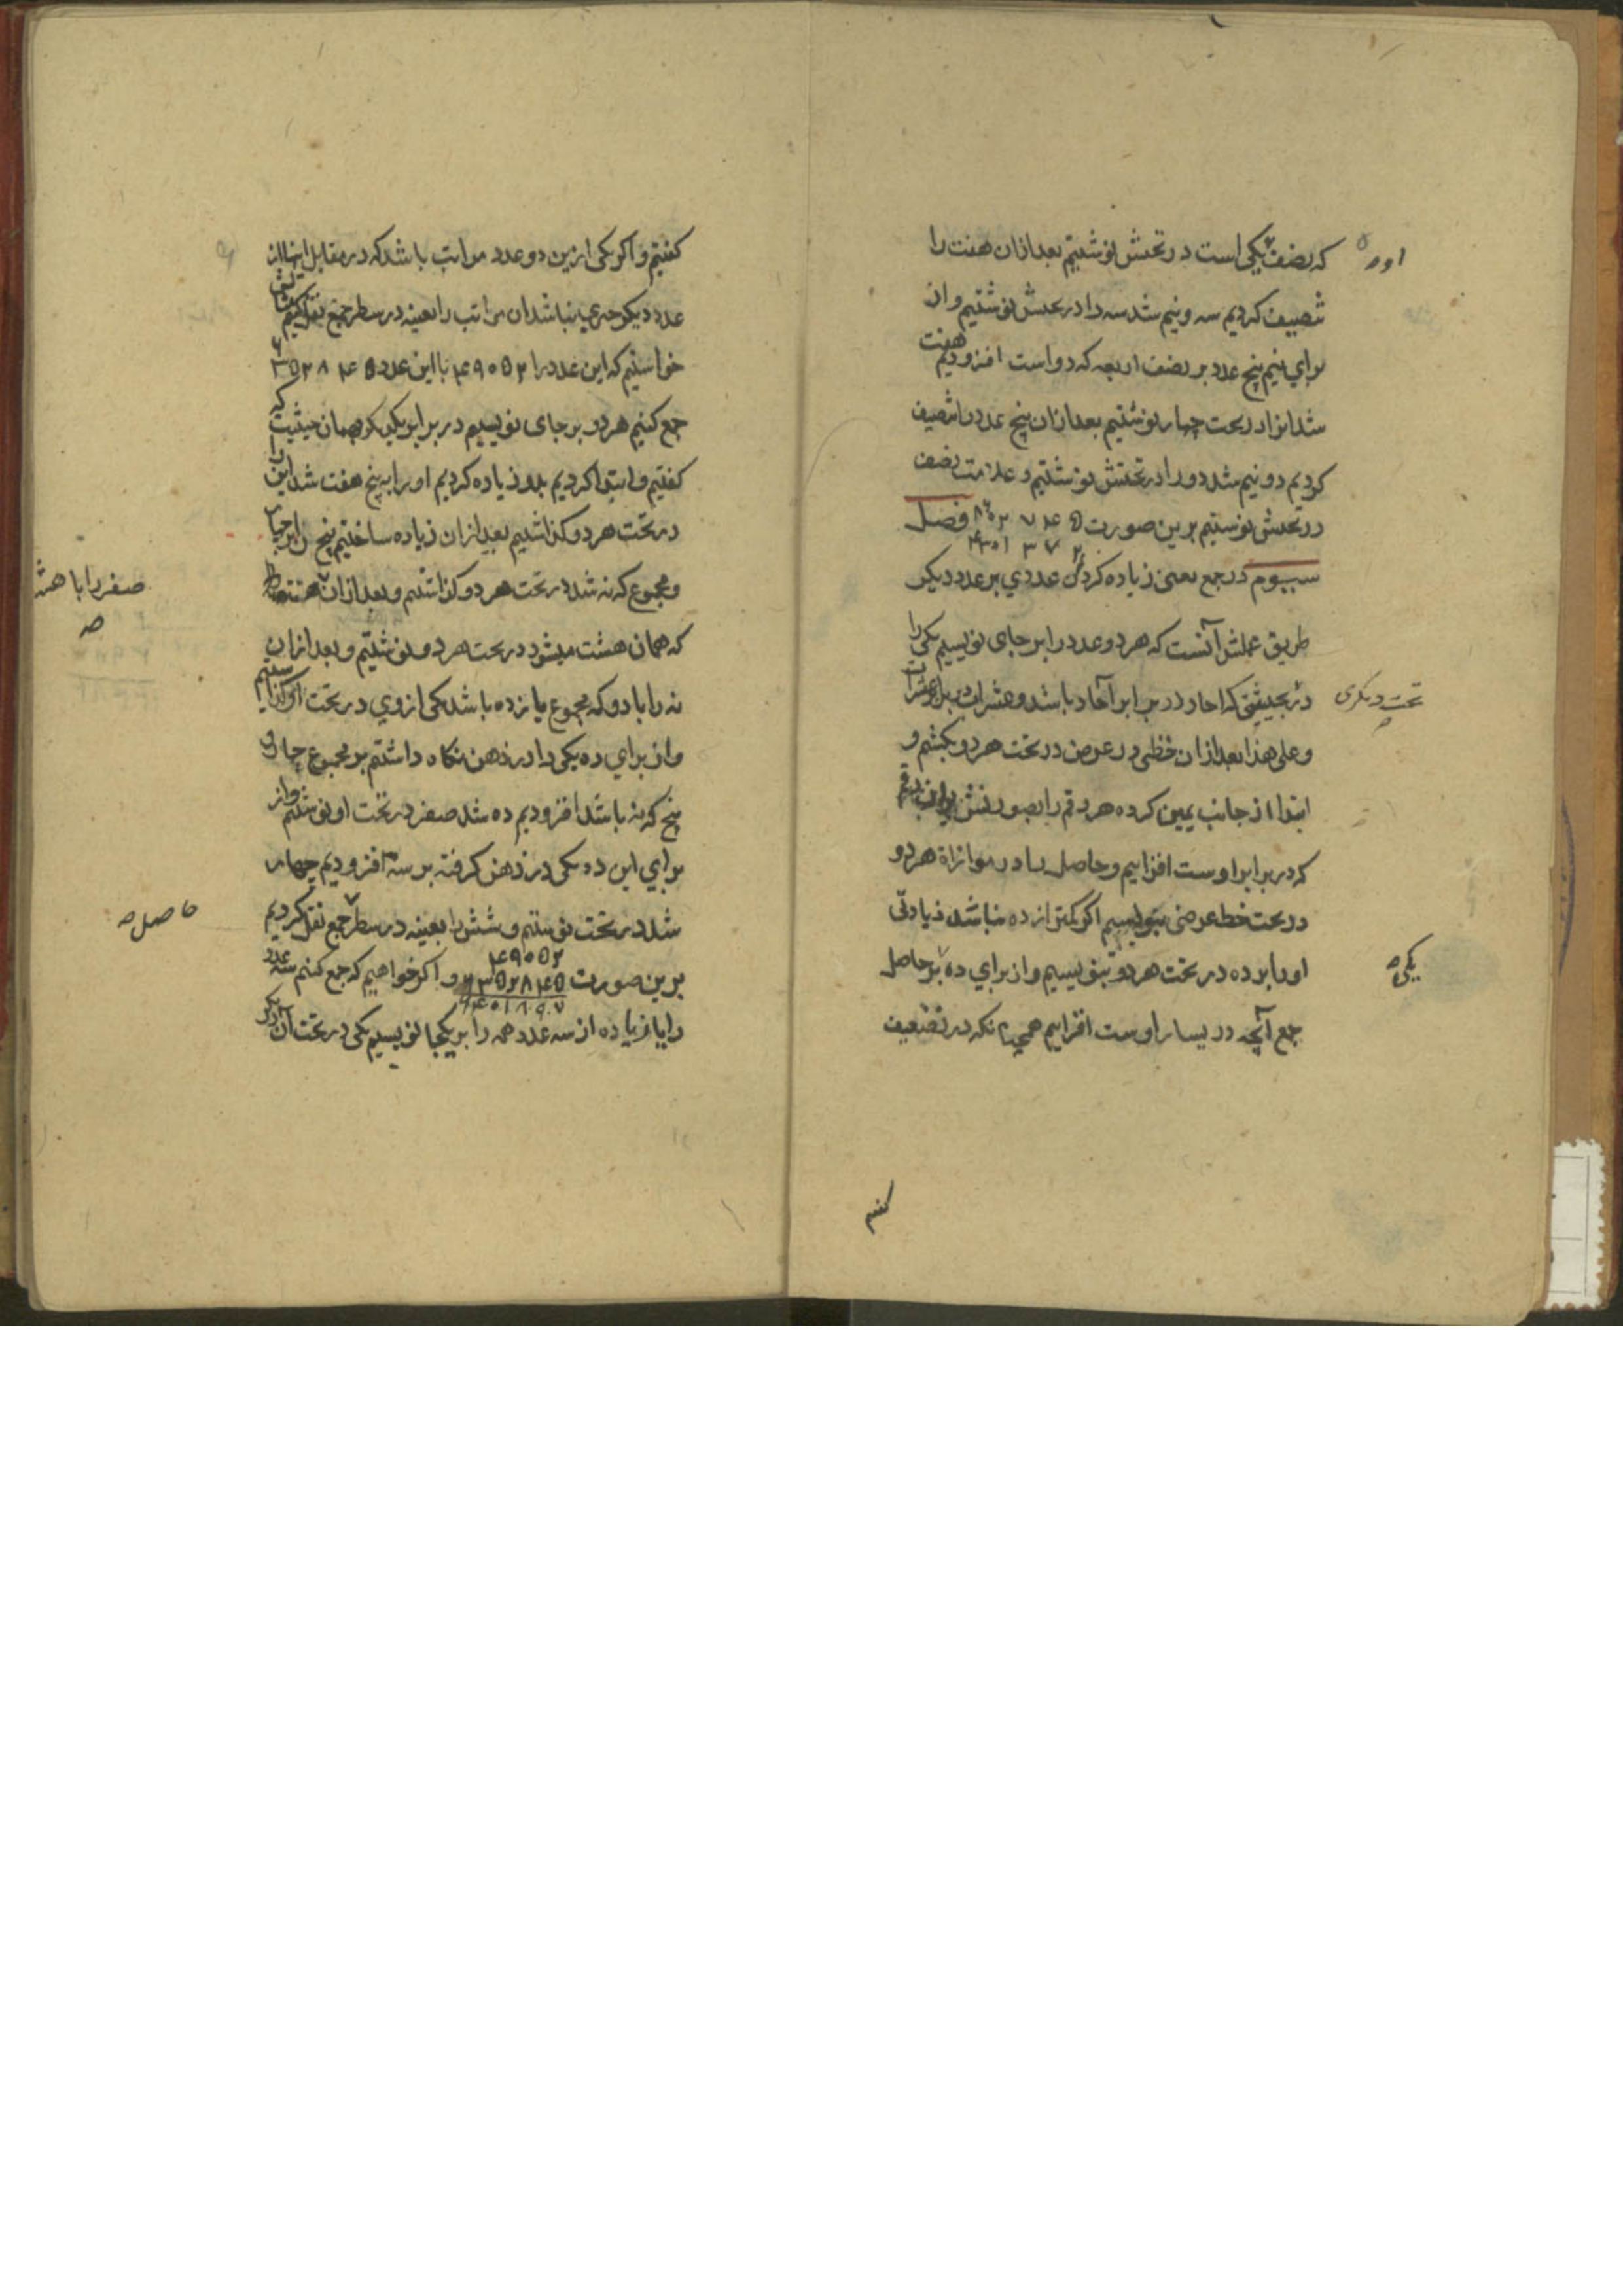 که نصف یکی است در تحتش نوشتیم بعد ازان هفت را
تنصیف کردیم سه و نیم شد سه را در تحتش نوشتیم و از
برای نیم پنج عدد بر نصف اربعه که دو است افزودیم هفت
شد انرا در تحت چهار نوشتیم بعد ازان پنج عدد را تنصیف
کردیم دو نیم شد دو را در تحتش نوشتیم و علامت نصف
در تحتش نوشتیم برین صورت فصل
سیوم در جمع یعنی زیاده کردن عددی بر عدد دیکر
طریق عملش آنست که هر دو عدد را بر جای نویسیم یکی را
در بحیثیتی که احاد در برابر آحاد باشد و عشرات در برابر عشرات
و علی هذا بعد ازان خطی در عرض در تحت هر دو بکشیم و
ابتدا از جانب یمین کرده هر رقم را بصورتش
که در برابر اوست افزاییم و حاصل را در موازاة هر دو
در تحت خط عرضی بنویسیم اکر کمتر از ده نباشد زیادتی
اورا بر ده در تحت هر دو بنویسیم و از برای ده بر حاصل
جمع آنچه در یسار اوست افزاییم همچنانکه در تضعیف
اورا
تحت دیکری
یکی
کفتیم
کفتیم و اکر یکی ازین دو عدد مراتب باشد که در مقابل اینها از
عدد دیکر چیزی نباشد ان مراتب را بعینه در سطر جمع نقل کنیم
خواستیم که این عدد را ۴۹۰۵۲ با این عدد ۶۳۵۲۸۴۵
جمع کنیم هر دو بر جای نویسیم در برابر یکدیکر بهمان حیثیت که
کفتیم و ابتدا کردیم بدو زیاده کردیم اورا به پنج هفت شد این را
در تحت هر دو کذاشتیم بعد ازان زیاده ساختیم پنج را بر چهار
و مجموع که نه شد در تحت هر دو کذاشتیم و بعد ازان
که همان هشت میشود در تحت هر دو نوشتیم و بعد ازان
نه را با دو که مجموع یازده باشد یکی از وی در تحت او کذاشتیم
و از برای ده یکی را در ذهن نکاه داشتیم بر مجموع چهار و
پنج که نه باشد افزودیم ده شد صفر در تحت او نوشتیم و از
برای این ده یکی در ذهن کرفته بر سه افزودیم چهار
شد در تحت نوشتیم و شش را بعینه در سطر جمع نقل کردیم
۴۹۰۵۲
برین صورت ۶۳۵۲۸۴۵ و اکر خواهیم که جمع کنیم سه عدد
۶۴۰۱۸۹۷
را یا زیاده از سه عدد همه را بر یکجا نویسیم یکی در تحت آن دیکر
صفر را با هشت
صه
حاصل صه